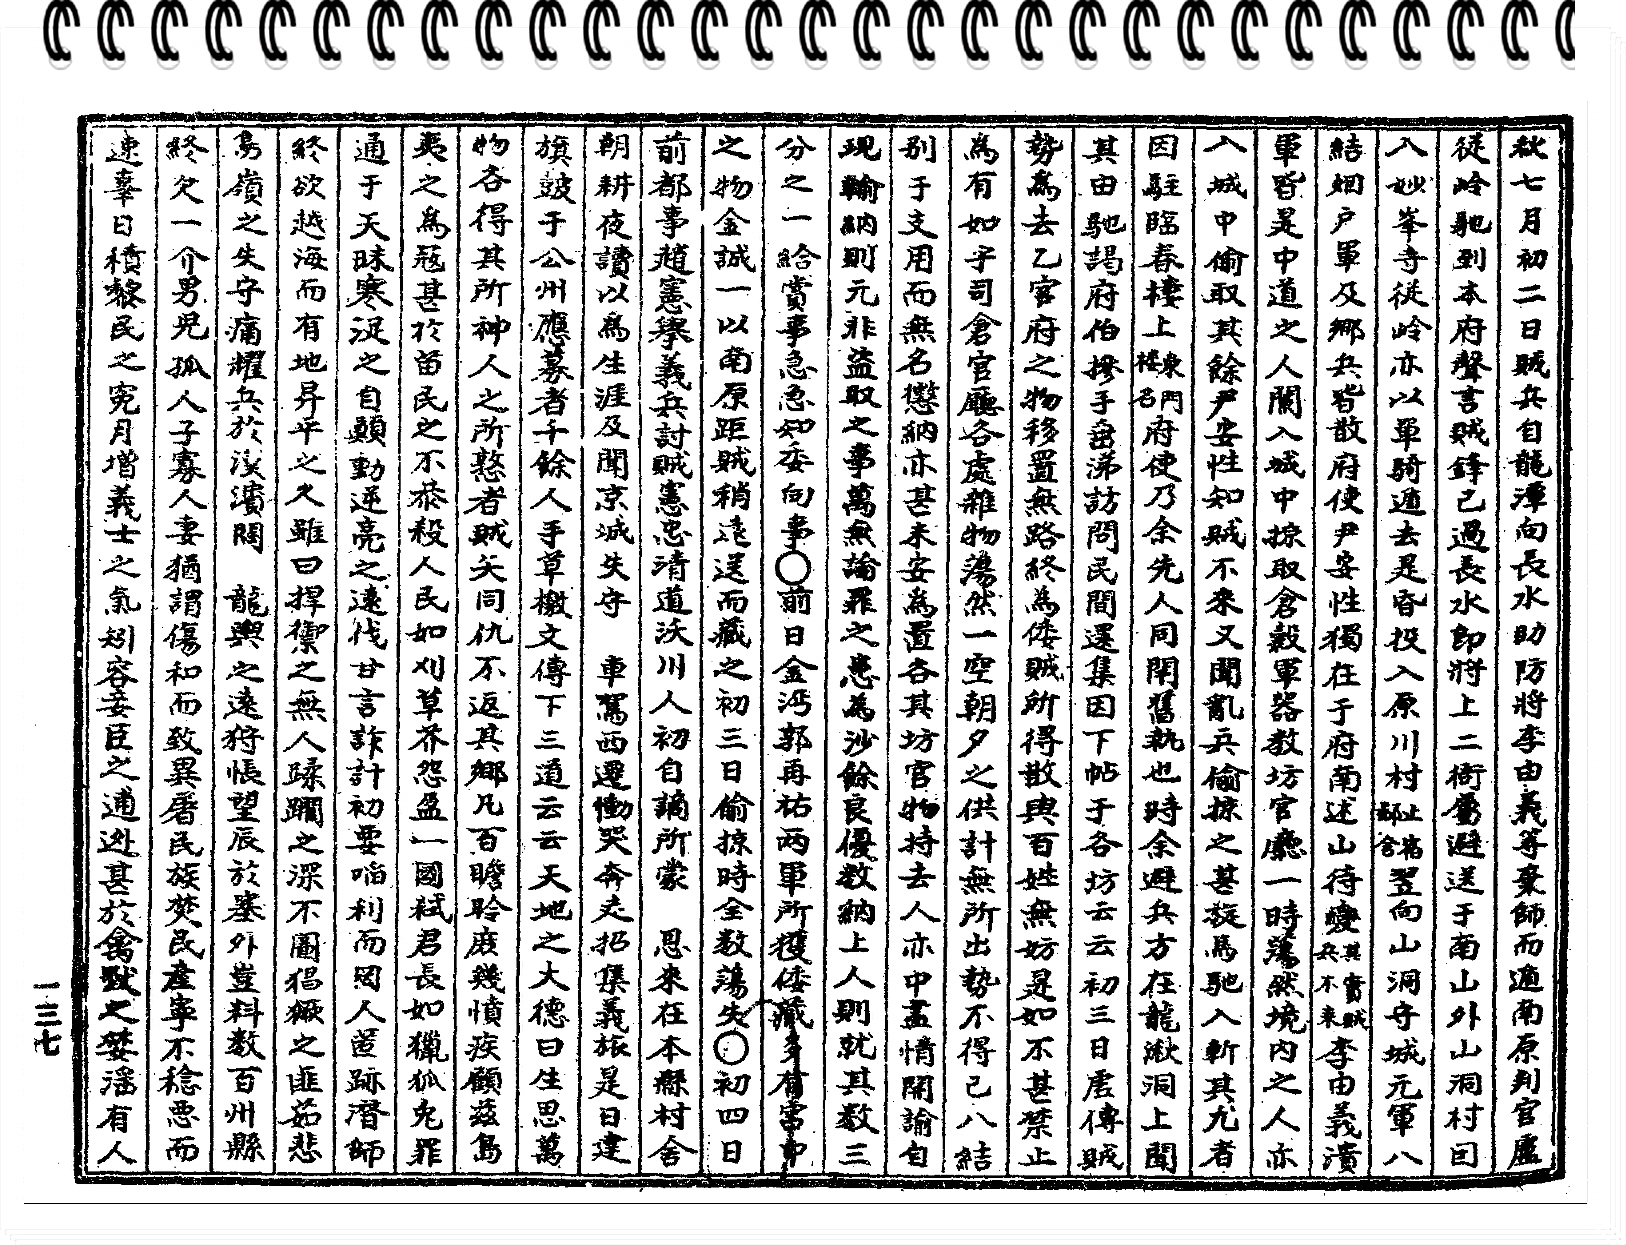 秋七月初二日賊兵自龍潭向長水助防將李由義等棄師而遁南原判官盧
從岭馳到本府聲言賊鋒已過長水即將上二衙屬避送于南山外山洞村回
入妙峯寺從岭亦以單騎遁去是昏投入原川村翌向山洞守城元軍八
結烟户軍及鄉兵皆散府使尹安性獨在于府南述山待變其實賊兵不來李由義潰
軍皆是中道之人闌入城中掠取倉穀軍器教坊官廳一時蕩然境內之人亦
入城中偷取其餘尹安性知賊不來又聞亂兵偷掠之甚旋馬馳入斬其尤者
因駐臨春棲上樓東門名府使乃余先人同閈舊執也時余避兵方在龍湫洞上聞
其由馳謁府伯摻手垂涕訪問民間還集因下帖于各坊云云初三日唐傳賊
勢為去乙官府之物移置無路終為倭賊所得散與百姓無妨是如不甚禁止
為有如乎司倉官廳各處雜物蕩然一空朝夕之供計無所出勢不得已八結
別于支用而無名懲納亦甚未安為置各其坊官物持去人亦中盡情開諭自
現輸納則元非盜取之事萬無論罪之患為沙餘良優數納上人則就其數三
分之一給賞事急急知委向事〇前日金沔郭再祐兩軍所獲倭藏多有當中
之物金誠一以南原距賊稍遠送而藏之初三日偷掠時全數蕩失〇初四日
前都事趙憲擧義兵討賊憲忠清道沃川人初自謫所蒙 恩來在本縣村舍
朝耕夜讀以為生涯及聞京城失守 車駕西遷慟哭奔走招集義旅是日建
旗鼓于公州應募者千餘人手草檄文傳下三道云云天地之大德曰生思萬
物各得其所神人之所憝者賊矢同仇不返其鄉凡百瞻聆庶幾憤疾顧茲島
夷之為寇甚於苗民之不恭殺人民如刈草芥怨盈一國弑君長如獵狐兔罪
通于天昧寒浞之自顛動逆亮之遠伐甘言詐計初要啗利而罔人匿跡潛師
終欲越海而有地昇平之久雖曰捍禦之無人蹂躪之深不圖猖獗之匪茹悲
鳥嶺之失守痛耀兵於漢濱閔 龍輿之遠狩悵望辰於塞外豈料數百州縣
終欠一介男兒孤人子寡人妻猶謂傷和而致異屠民族焚民產寧不稔惡而
速辜日積黎民之寃月增義士之氣矧容妾臣之逋逃甚於禽獸之婪淫有人
一三七